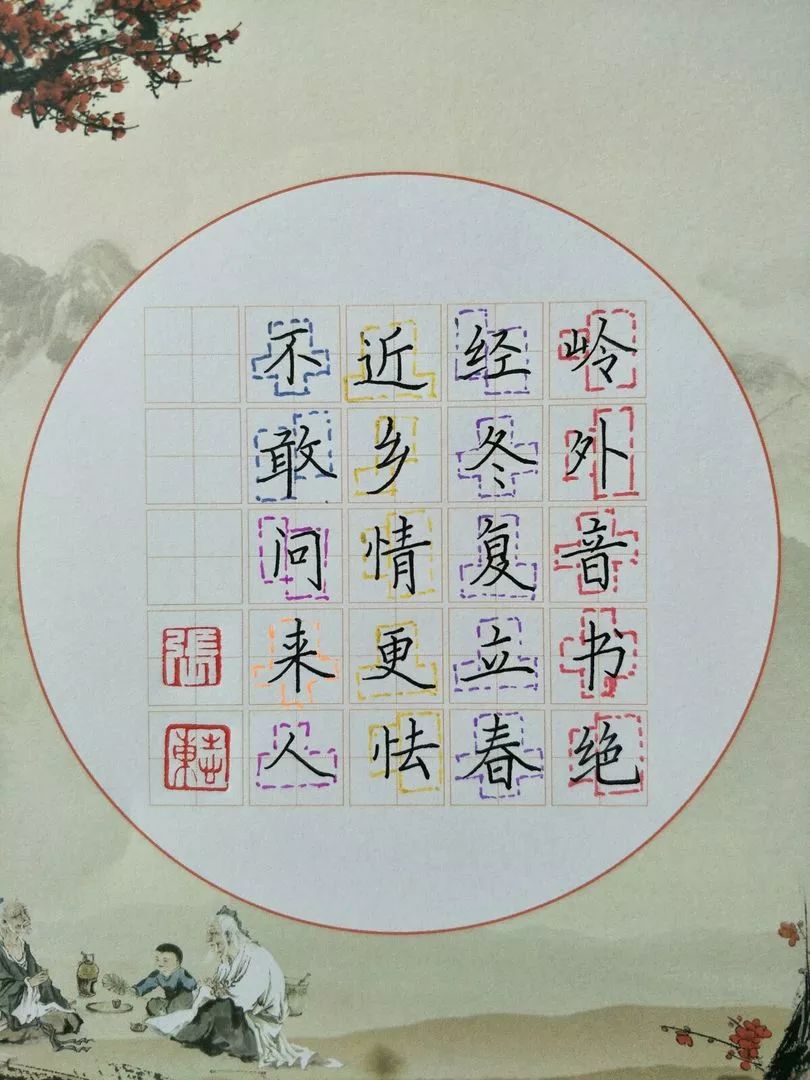 岭外音书绝
经冬复立春
近乡情更怯
不敢问来人
張